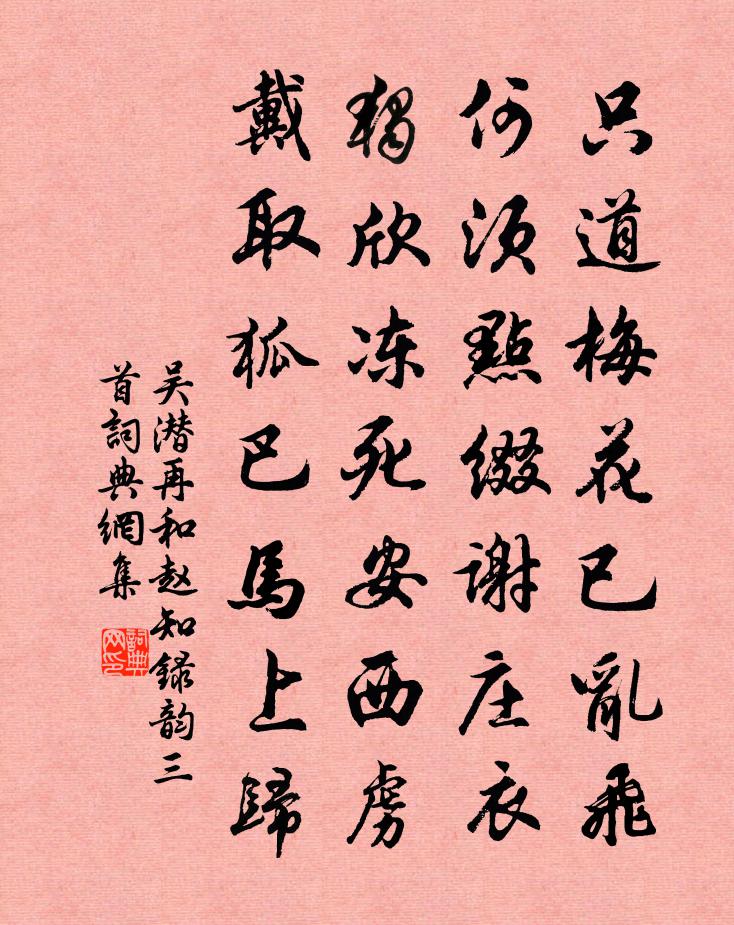 只道梅花已亂飛
何須點綴謝庄衣
獨欣冻死安西虏
戴取狐巴馬上歸
吴潜再和赵知録韵三
首詞典網集
詞典
网印